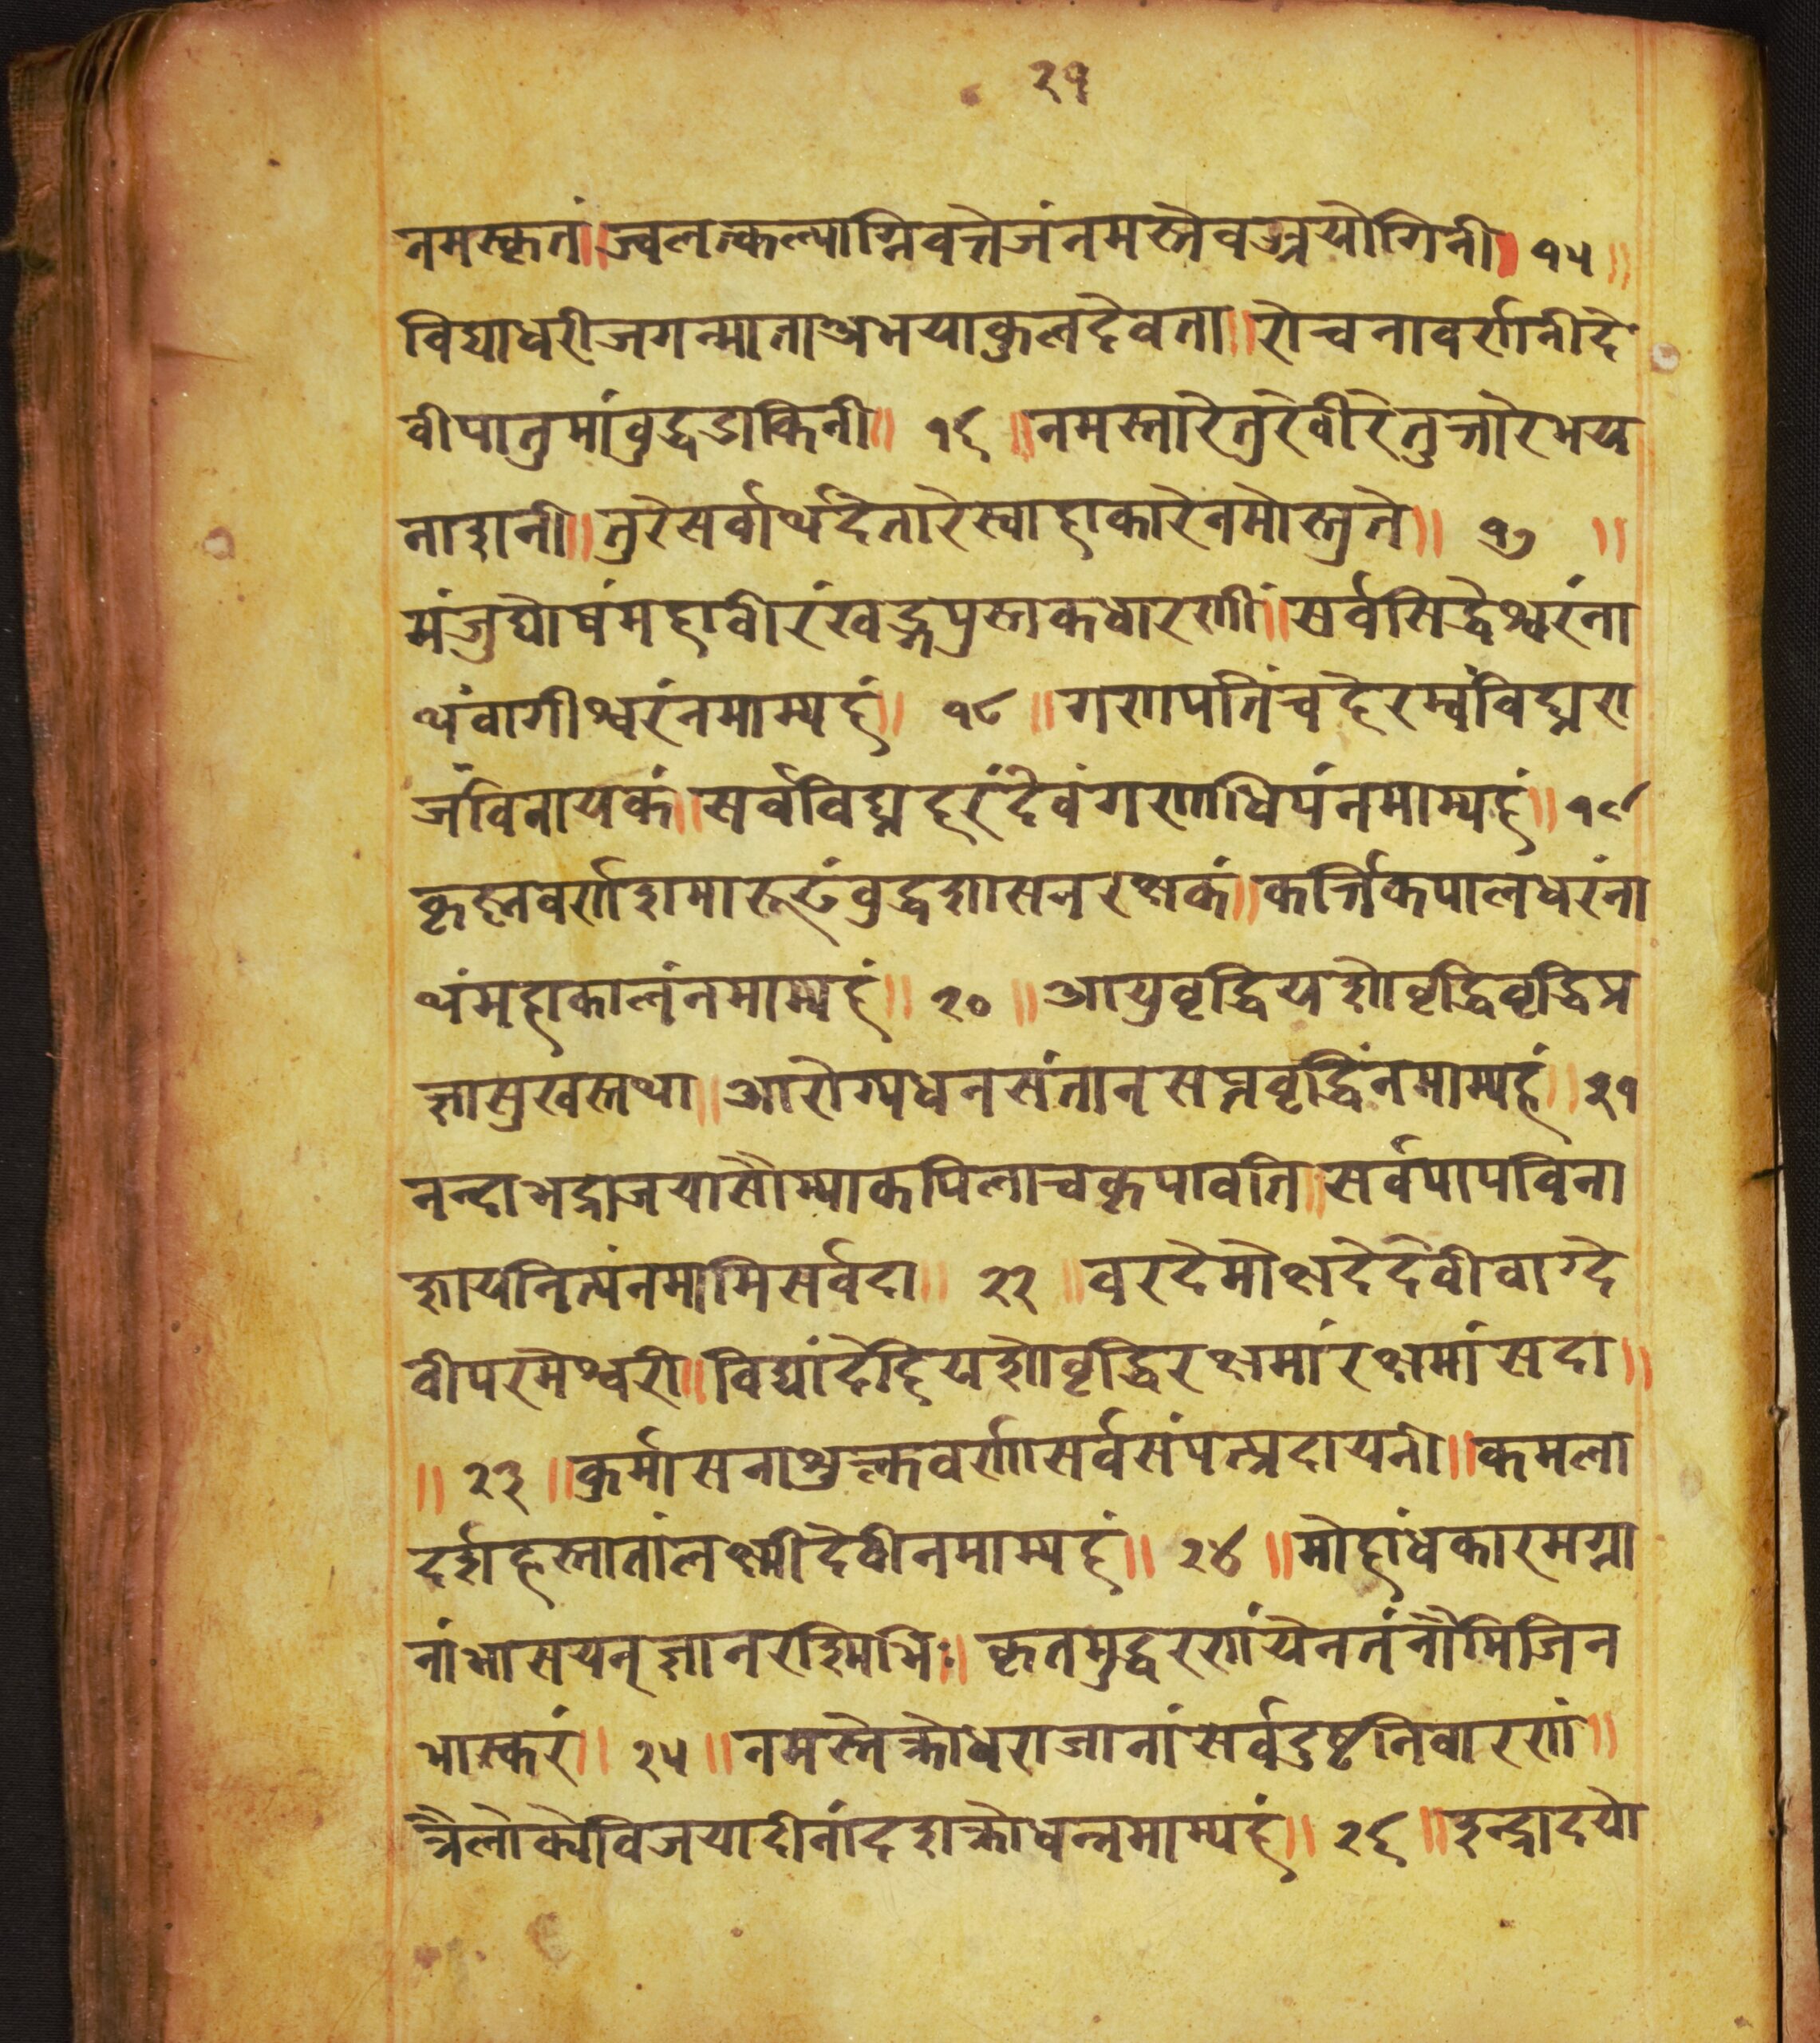 २१
नमस्कृतं॥ज्वलत्कल्पाग्निवत्तेजंनमस्तेवज्रयोगिनी॥१५॥
विद्याधरीजगन्माताअभयाकुलदेवता॥रोचनावर्णानीदे
वीपातुमांबुद्धडाकिनी॥१६॥नमस्तारेतुरेवीरेतुत्तारेभय
नाशनी॥तुरेसर्वार्थदेतारेस्वाहाकारेनमोस्तुते॥१७॥
मंजुघोषंमहावीरंखड्गपुस्तकधारणीं॥सर्वसिद्धेश्वरंना
थंवागीश्वरंनमाम्यहं॥१८॥गणपतिंचहेरम्बंविघ्नरा
जंविनायकं॥सर्वविघ्नहरंदेवंगणाधिपंनमाम्यहं॥१९
कृष्णवर्णाशमारूढंबुद्धशासनरक्षकं॥कर्त्तिकपालधरंना
थंमहाकालंनमाम्यहं॥२०॥आयुवृद्धियशोवृद्धिवृद्धिप्र
ज्ञासुखस्तथा॥आरोग्यधनसंतानसप्तवृद्धिंनमाम्यहं॥२१
नन्दाभद्राजयासौम्याकपिलाचकृपावति॥सर्वपापविना
शायनित्यंनमामिसर्वदा॥२२॥वरदेमोक्षदेदेवीवाग्दे
वीपरमेश्वरी॥विद्यांदेहियशोवृद्धिरक्षमांरक्षमांसदा॥
॥२३॥कुर्मासनाशुक्लवर्णासर्वसंपत्प्रदायनी॥कमला
दर्शहस्तातांलक्ष्मीदेवीनमाम्यहं॥२४॥मोहांधकारमग्ना
नांभासयन्ज्ञानरश्मिभिः॥कृतमुद्धरणंयेनतंनौमिजिन
भास्करं॥२५॥नमस्तेक्रोधराजानांसर्वदुष्टनिवारणं॥
त्रैलोक्येविजयादीनांदशक्रोधन्नमाम्यहं॥२६॥इन्द्रादयो